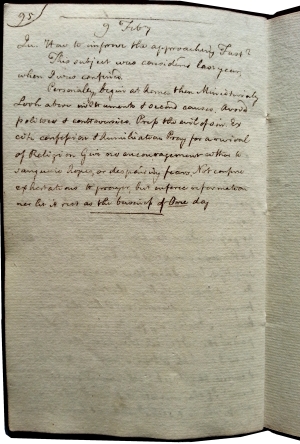 95)
9 Feby
Qu. How to improve the approaching Fast?
This subject was considered last year,
when I was confined.
Personally begin at home then Ministerially
Look above instruments & second causes, avoid
politics & controversies, Press the evil of sin. Ex
cite confession & humiliation Pray for a revival
of Religion Give no encouragement either to
sanguine hopes, or despairing fears. Not confine
exhortations to prayer, but enforce reformation
nor let it rest as the business of One day